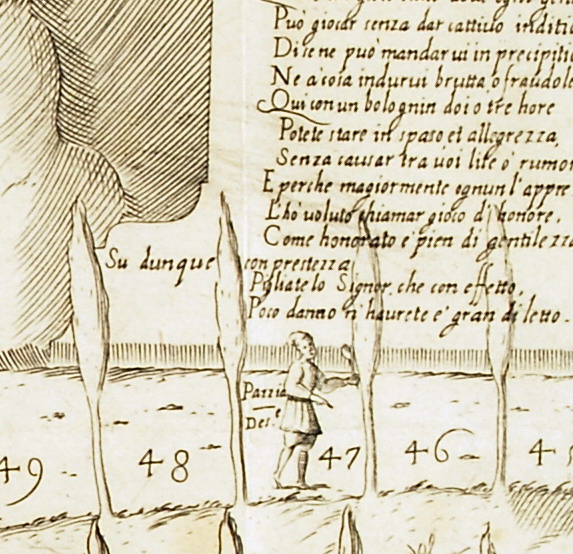 Può giocar senza dar cattiuo inditio
Di se ne può mandar ui in precipitio
Ne à cosa indurui brutta, o fraudole
Qui con un bolognin doi o tre hore
Potete stare in spaso et allegrezza,
Senza causar tra uoi lite o' rumor
E perche magiormente ognun l'appre
L'hò uoluto chiamar gioco d'honore,
Come honorato e' pien di gentilezza
Su dunque con prestezza
Pigliatelo Signor, che con effetto,
Poco danno n'haurete e' gran diletto.
Pazzia
49 48 47 46